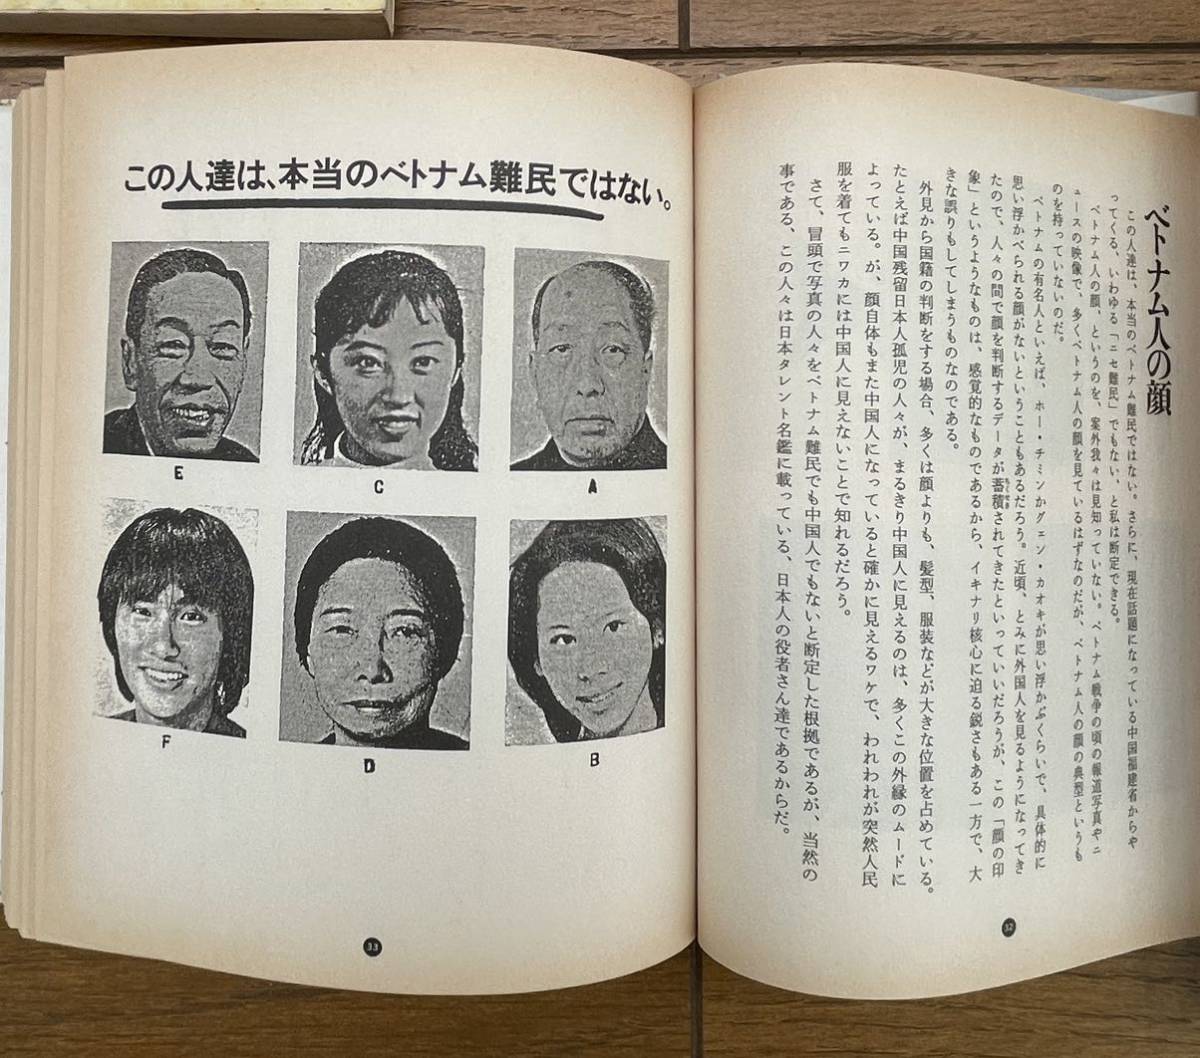 ベトナム人の顔
この人達は、本当のベトナム難民ではない。さらに、現在話題になっている中国福建省からや
ってくる、いわゆる「ニセ難民」でもない、と私は断定できる。
ベトナム人の顔、というのを、案外我々は見知っていない。ベトナム戦争の頃の報道写真やニ
ュースの映像で、多くベトナム人の顔を見ているはずなのだが、ベトナム人の顔の典型というも
のを持っていないのだ。
ベトナムの有名人といえば、ホー・チミンかグェン・カオキが思い浮かぶくらいで、具体的に
思い浮かべられる顔がないということもあるだろう。近頃、とみに外国人を見るようになってき
たので、人々の間で顔を判断するデータが蓄積されてきたといっていいだろうが、この「顔の印
象」というようなものは、感覚的なものであるから、イキナリ核心に迫る鋭さもある一方で、大
きな誤りもしてしまうものなのである。
外見から国籍の判断をする場合、多くは顔よりも、髪型、服装などが大きな位置を占めている。
たとえば中国残留日本人孤児の人々が、まるきり中国人に見えるのは、多くこの外縁のムードに
よっている。が、顔自体もまた中国人になっていると確かに見えるワケで、われわれが突然人民
服を着てもニワカには中国人に見えないことで知れるだろう。
さて、冒頭で写真の人々をベトナム難民でも中国人でもないと断定した根拠であるが、当然の
事である、この人々は日本タレント名鑑に載っている、日本人の役者さん達であるからだ。
32
この人達は、本当のベトナム難民ではない。
E
C
A
F
D
B
33